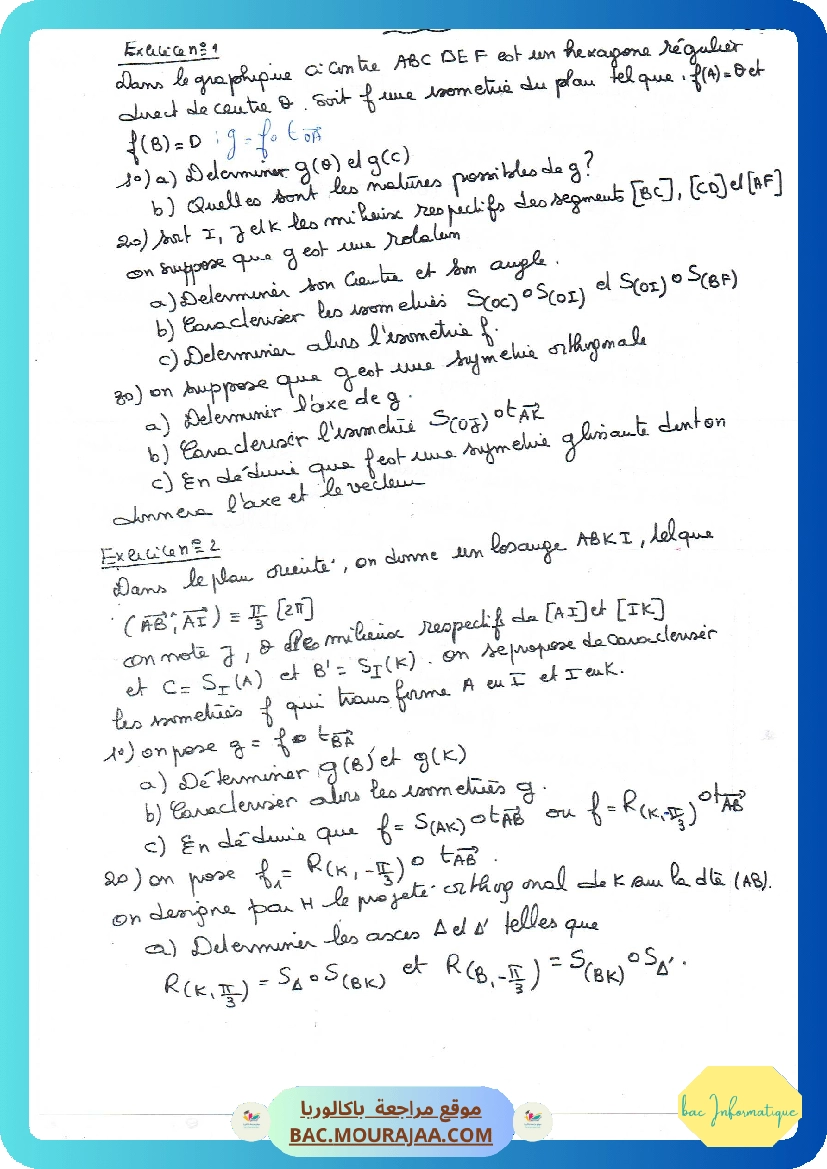 Exercice n° 1
Dans le graphique ci contre ABCDEF est un hexagone régulier
direct de centre O. Soit f une isometrie du plan tel que . f(A)=O et
f(B)=D ; g = f∘ t_OA→
1°) a) Determiner g(O) et g(C)
b) Quelles sont les natures possibles de g?
2o) soit I, J et K les milieux respectifs des segments [BC], [CD] et [AF]
on suppose que g est une rotation
a) Determiner son Centre et son angle.
b) Caracteriser les isometries S(OC) ∘ S(OI) et S(OI) ∘ S(BF)
c) Determiner alors l'isometrie f.
3o) on suppose que g est une symetrie orthogonale
a) Determinir l'axe de g.
b) Caracteriser l'isometrie S(OJ) ∘ t_AK→
c) En déduire que f est une symetrie glissante dont on
donnera l'axe et le vecteur
Exercice n° 2
Dans le plan orienté, on donne un losange ABKI, tel que
(AB→^, AI→) ≡ π/3 [2π]
on note J, O les milieux respectifs de [AI] et [IK]
et C = S_I(A) et B' = S_I(K). on se propose de caracteriser
les isometries f qui transforme A en I et I en K.
1o) on pose g = f∘ t_BA→
a) Déterminer g(B) et g(K)
b) Caracteriser alors les isometries g.
c) En déduire que f = S(AK) ∘ t_AB→ ou f = R(K,-π/3) ∘ t_AB→
2o) on pose f₁ = R(K, -π/3) ∘ t_AB→.
on designe par H le projeté orthogonal de K sur la dte (AB).
a) Determiner les axes Δ et Δ' telles que
R(K, π/3) = S_Δ ∘ S(BK) et R(B, -π/3) = S(BK) ∘ S_Δ'.
bac Informatique
موقع مراجعة باكالوريا
BAC.MOURAJAA.COM